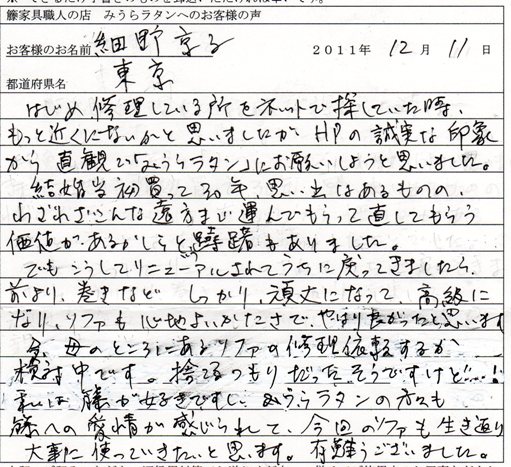 籐家具職人の店 みうらラタンへのお客様の声
お客様のお名前 細野京子 2011年 12月 11日
都道府県名 東京
はじめ修理している所をネットで探していた時、
もっと近くにないかと思いましたがHPの誠実な印象
から直観で「みうらラタン」にお願いしようと思いました。
結婚当初買って30年、思い出はあるものの、
わざわざこんな遠方まで運んでもらって直してもらう
価値があるかしらと躊躇もありました。
でもこうしてリニューアルされてうちに戻ってきましたら、
前より、巻きなど しっかり、頑丈になって、高級に
なり、ソファも心地よいかたさで、やはり良かったと思います
今、母のところにあるソファの修理依頼するか
検討中です。捨てるつもりだったそうですけど…!
私は籐が好きですし、みうらラタンの方々も
籐への愛情が感じられて、今回のソファも生き返り
大事に使っていきたいと思います。有難うございました。